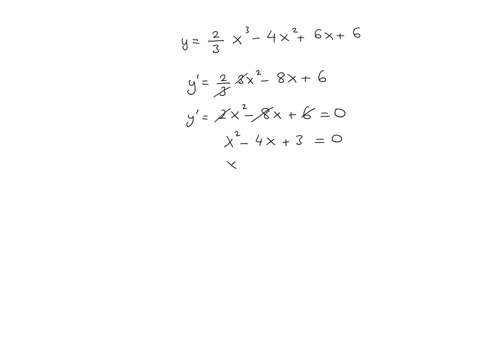 y = 2/3 x³ - 4x² + 6x + 6
y' = 2/3 3x² - 8x + 6
y' = 2x² - 8x + 6 = 0
x² - 4x + 3 = 0
x